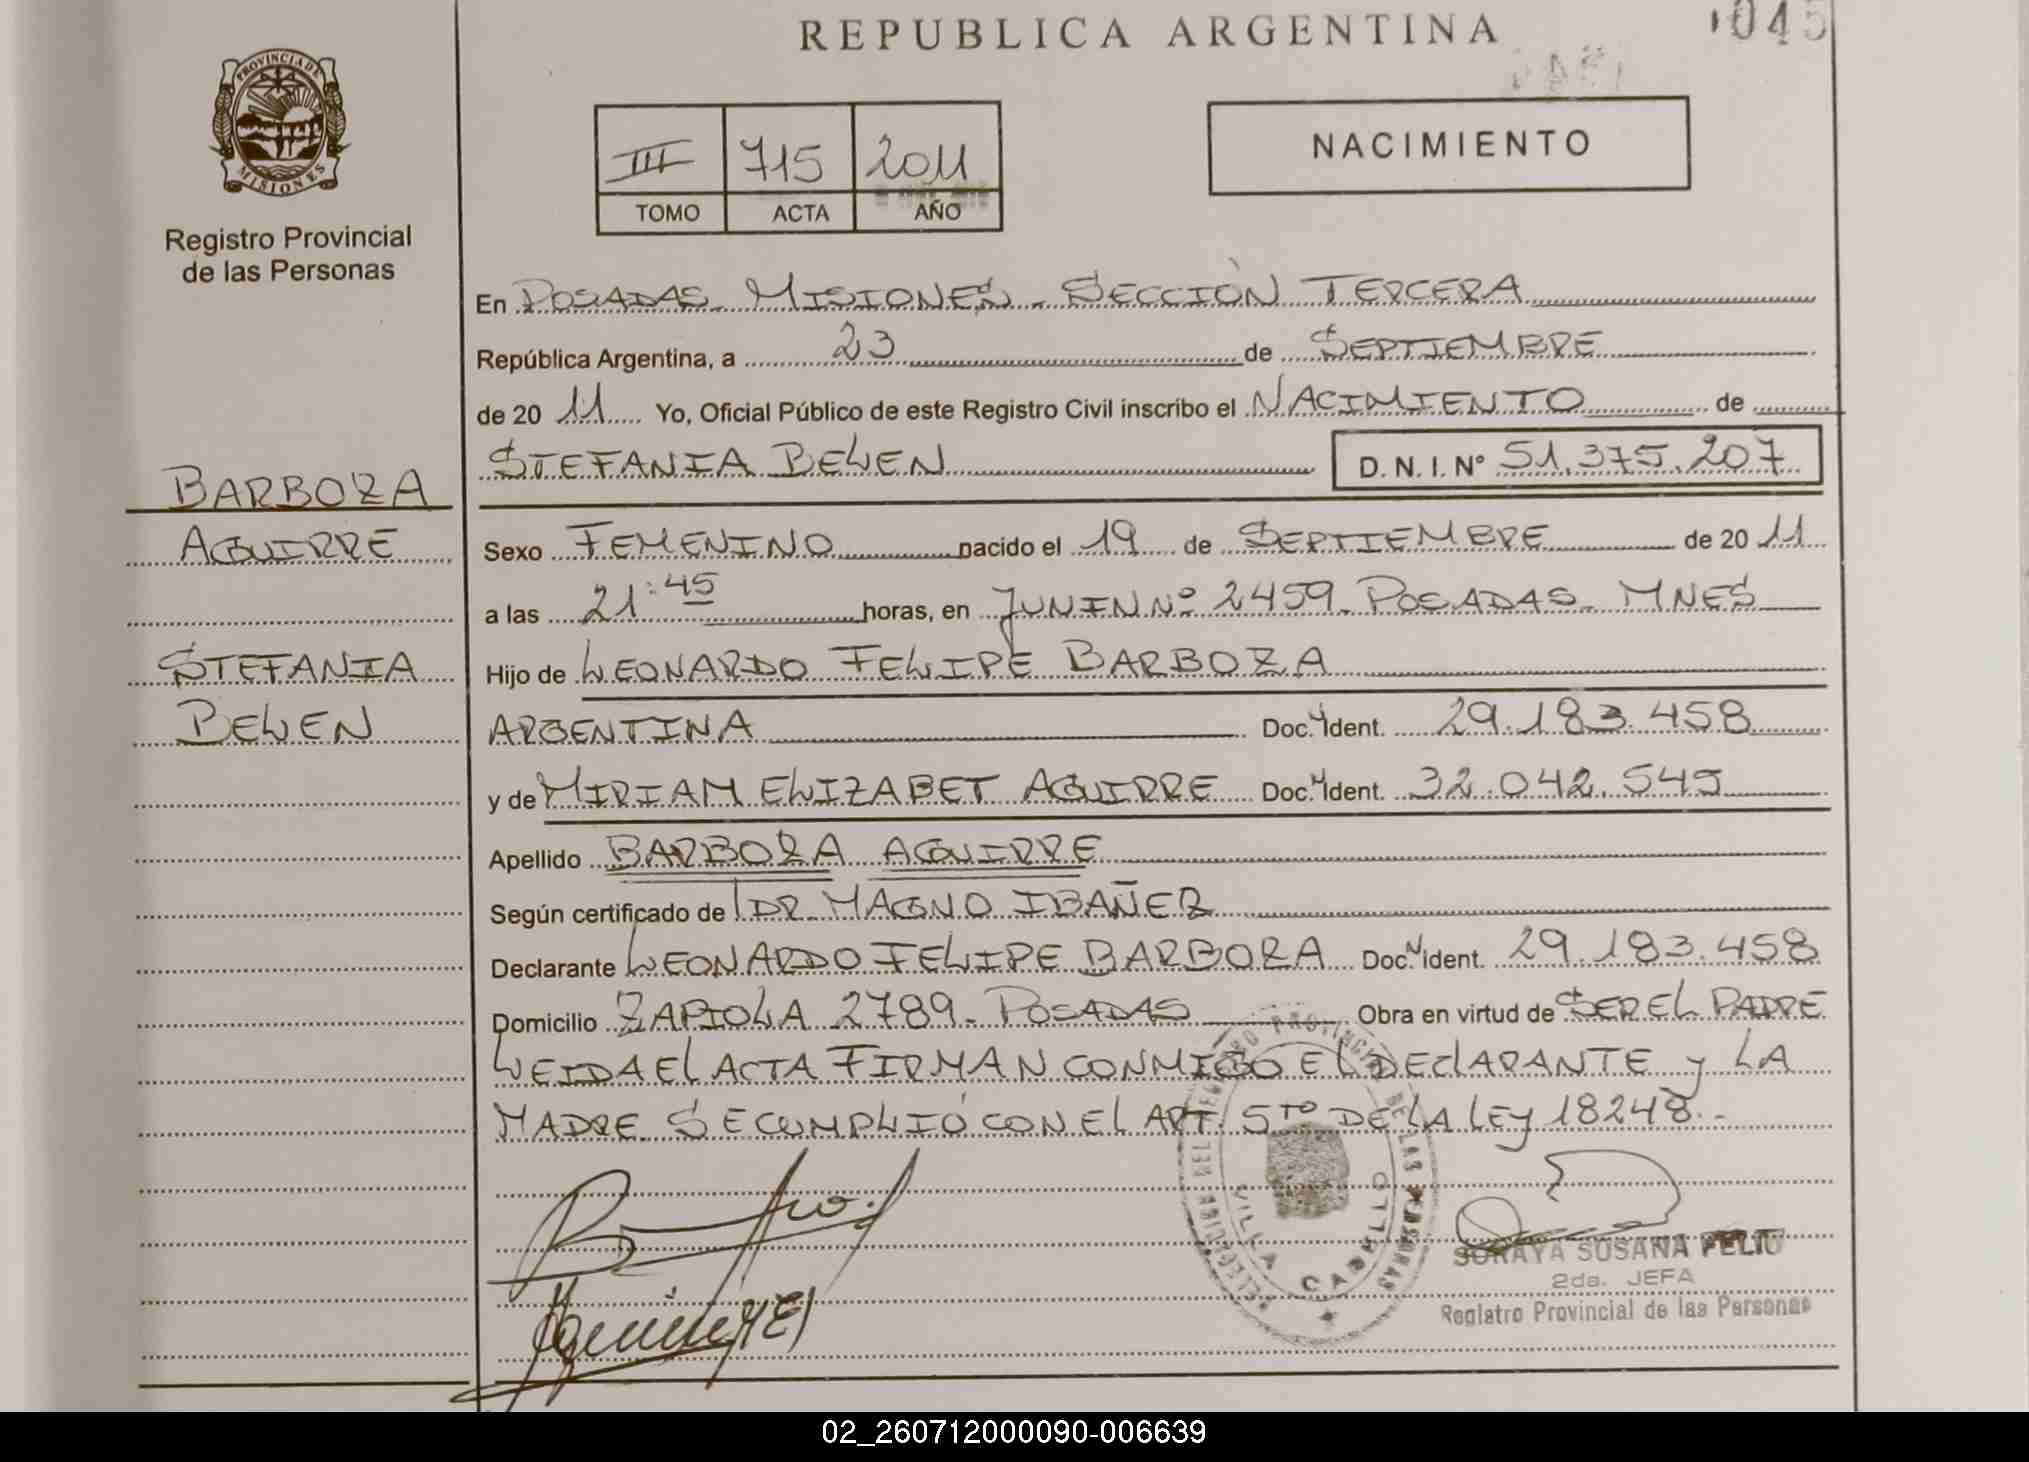 REPUBLICA ARGENTINA
045
PROVINCIA DE
MISIONES
Registro Provincial
de las Personas
III 715 2011
TOMO ACTA AÑO
NACIMIENTO
En POSADAS - MISIONES - SECCIÓN TERCERA
República Argentina, a 23 de SEPTIEMBRE
de 20 11 Yo, Oficial Público de este Registro Civil inscribo el NACIMIENTO de
STEFANIA BELEN D. N. I. Nº 51.375.207
BARBOZA
AGUIRRE
STEFANIA
BELEN
Sexo FEMENINO nacido el 19 de SEPTIEMBRE de 20 11
a las 21:45 horas, en JUNIN Nº 2459 - POSADAS - MNES
Hijo de LEONARDO FELIPE BARBOZA
ARGENTINA Doc. Ident. 29.183.458
y de MIRIAM ELIZABET AGUIRRE Doc. Ident. 32.042.545
Apellido BARBOZA AGUIRRE
Según certificado de DR. MAGNO IBAÑEZ
Declarante LEONARDO FELIPE BARBOZA Doc. Ident. 29.183.458
Domicilio ZAPIOLA 2789 - POSADAS Obra en virtud de SER EL PADRE
LEIDA EL ACTA FIRMAN CONMIGO EL DECLARANTE y LA
MADRE SE CUMPLIÓ CON EL ART. 5TO DE LA LEY 18248.-
VILLA CABELLO
SORAYA SUSANA FELIU
2da. JEFA
Registro Provincial de las Personas
02_260712000090-006639